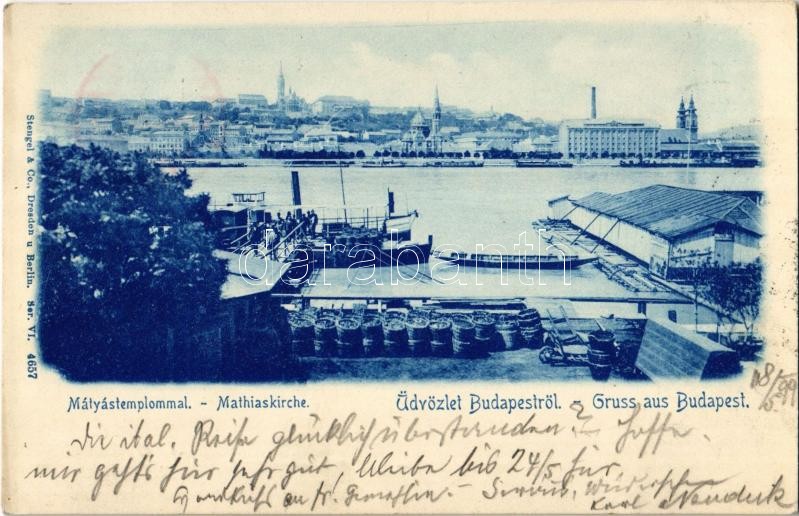 Stengel & Co., Dresden u Berlin. Ser. VI. 4657
darabanth
Mátyástemplommal. - Mathiaskirche.
Üdvözlet Budapestről. - Gruss aus Budapest.
18/5 99
Die ital. Reise glücklich überstanden. hoffe.
mir geht's für sehr gut, bleibe bis 24/5 für.
Servus, Karl